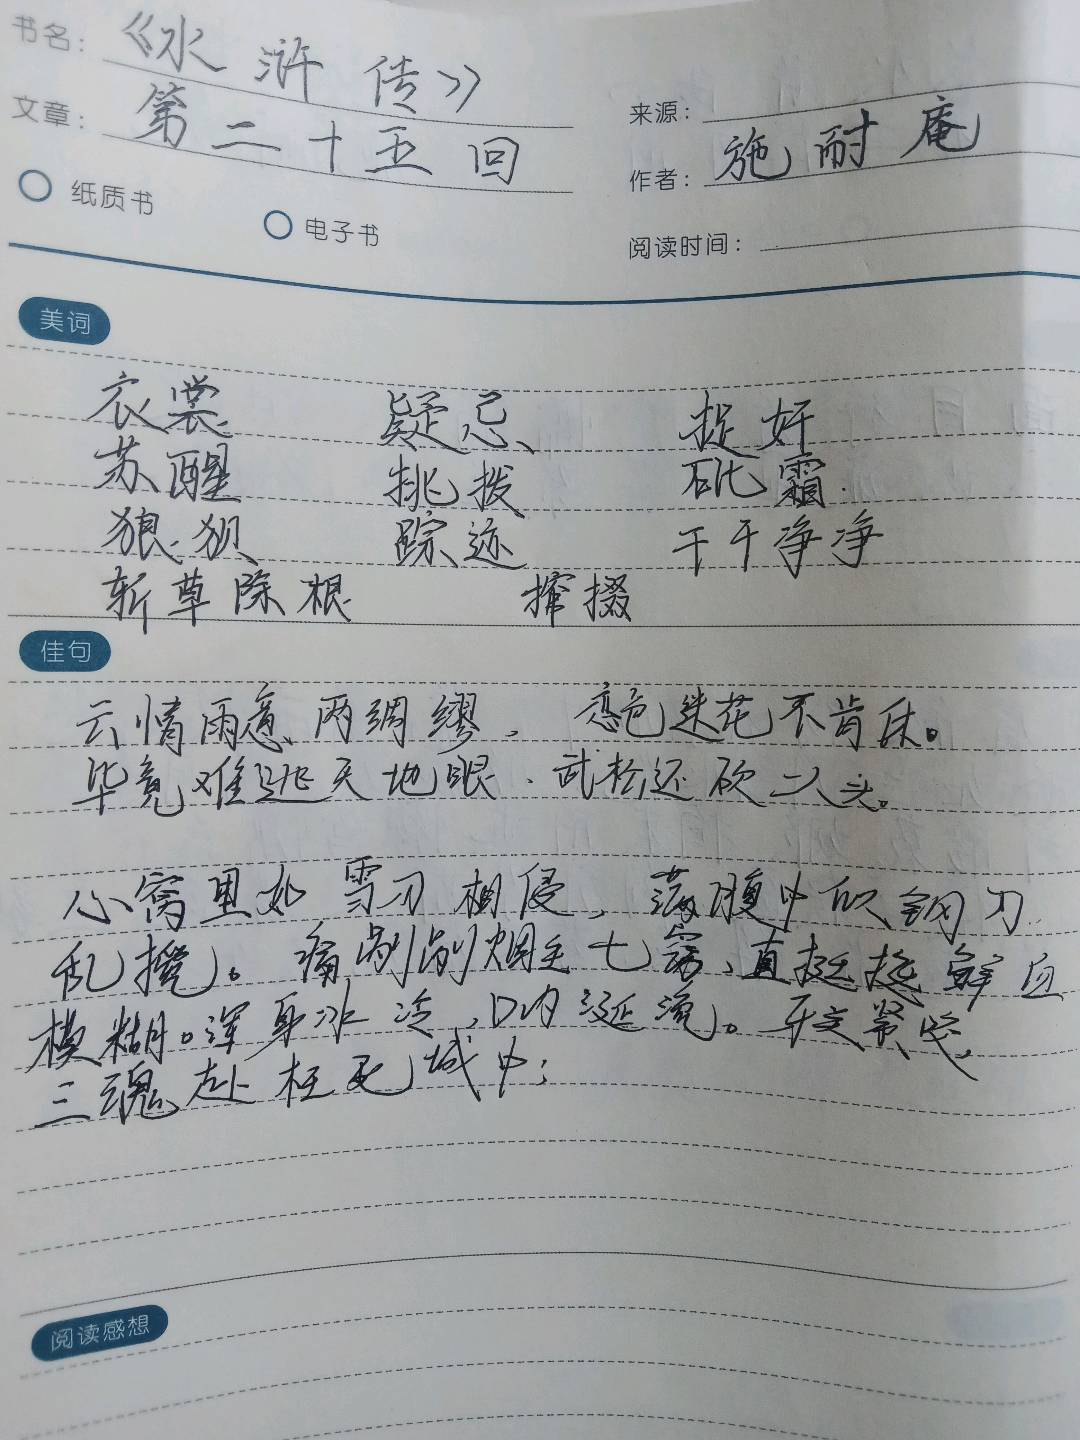 书名：《水浒传》
文章：第二十五回
来源：
作者：施耐庵
纸质书
电子书
阅读时间：
美词
衣裳 疑忌 捉奸
苏醒 挑拨 砒霜
狼狈 踪迹 干干净净
斩草除根 撺掇
佳句
云情雨意两绸缪，恋色迷花不肯休。
毕竟难逃天地眼，武松还砍二人头。
心窝里如雪刀相侵，满腹中似钢刀
乱搅。痛剐剐烟生七窍，直挺挺鲜血
模糊。浑身冰冷，口内涎流。牙关紧咬，
三魂赴枉死城中；
阅读感想